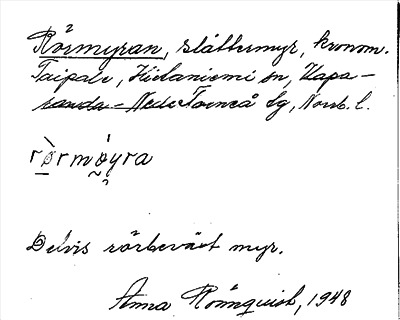 Rörmyran, slåttermyr, kronom.
Taipale, Hietaniemi sn, Hapa-
randa - Neder Torneå lg, Norrb. l.
rø̀rmøyra
Delvis rörbeväxt myr.
Anna Rönnquist, 1948